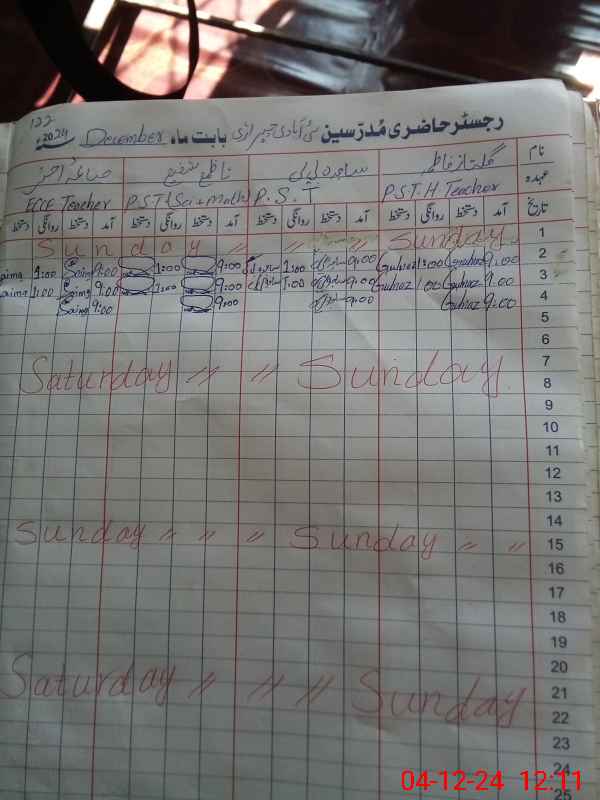 122
رجسٹر حاضری مُدرّسین بابت ماہ December 2024ء
نام گلناز فاطمہ
عہدہ P.S.T.H.Teacher P.S.T P.S.T(Sci+Math) ECCE Teacher
تاریخ آمد دستخط روانگی دستخط آمد دستخط روانگی دستخط آمد دستخط روانگی دستخط آمد دستخط روانگی دستخط
1 Sunday " " " Sunday
2 9:00 Gulnaz 1:00 Gulnaz 9:00 1:00 9:00 1:00 9:00 Saima 1:00 Saima
3 9:00 Gulnaz 1:00 Gulnaz 9:00 1:00 9:00 1:00 9:00 Saima 1:00 Saima
4 9:00 Gulnaz 9:00 9:00 9:00 Saima
5
6
7
8
Saturday " " Sunday
9
10
11
12
13
14
15 Sunday " " " Sunday " "
16
17
18
19
20
21
22
Saturday " " " Sunday
23
24
25
04-12-24 12:11